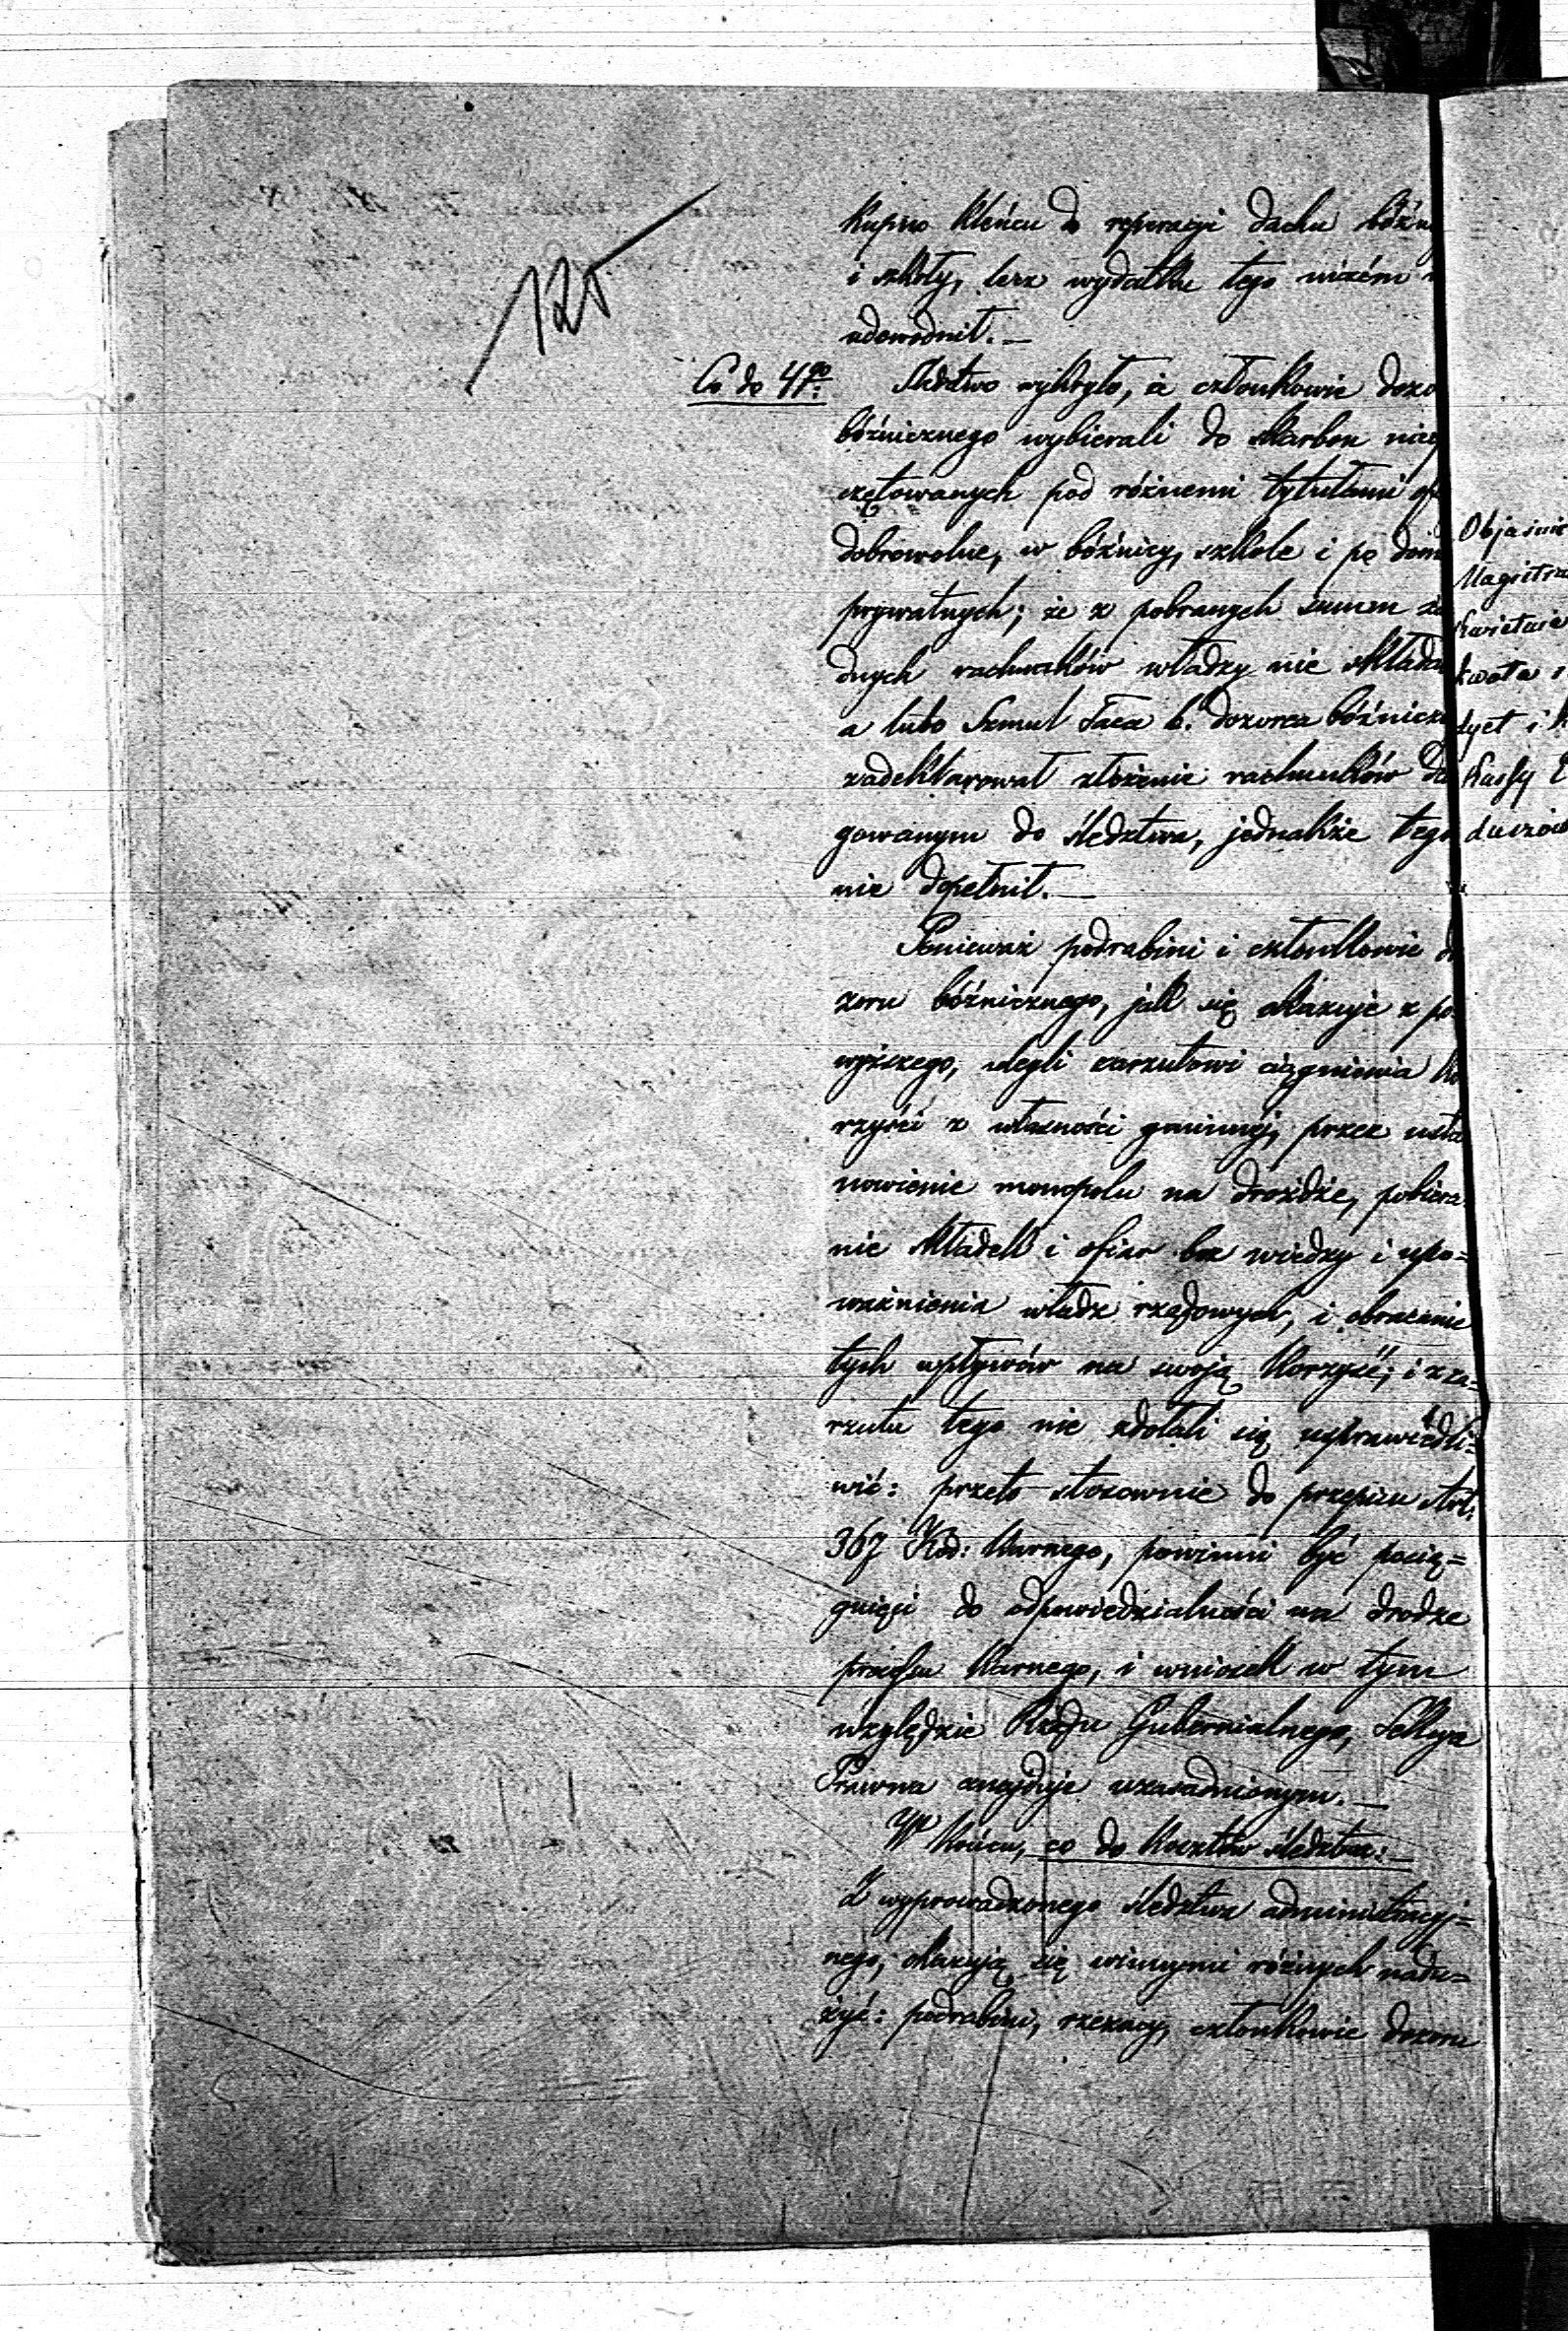 120
kupno kleńcu do reperacyi dachu bóźn
i szkoły, lecz wydatku tego niczém n
udowodnił. —
Co do 4go. Śledztwo wykryło, iż członkowie dozo
bóźnicznego wybierali do skarbon niep
czętowanych pod różnemi tytułami of
dobrowolne, w bóźnicy, szkole i po dom
prywatnych; że z pobranych summ ża
dnych rachunków władzy nie składa
a lubo Szmul b. dozorca bóźnicz
zadeklarował złożenie rachunków de
gowanym do śledztwa, jednakże tego
nie dopełnił. —
Ponieważ podrabini i członkowie do
zoru bóźnicznego, jak się okazuje z po
wyższego, ulegli zarzutowi ciągnienia ko
rzyści z własności gminnéj, przez usta
nowienie monopolu na drożdże, pobiera
nie składek i ofiar bez wiedzy i upo=
ważnienia władz rządowych, i obracanie
tych wpływów na swoją korzyść; i z za=
rzutu tego nie zdołali się usprawiedli=
wić: przeto stosownie do przepisu Art.
367 Kod: karnego, powinni być pocią=
gnięci do odpowiedzialności na drodze
processu karnego, i wniosek w tym
względzie Rządu Gubernialnego, Sekcya
Prawna znajduje uzasadnionym. —
W końcu, co do kosztów śledztwa: —
Z wyprowadzonego śledztwa administracyj=
nego, okazują się winnymi różnych nadu=
żyć: podrabini, rzezacy, członkowie dozoru
Objaśnie
Magistra
Kwietnia
kwota
dyet i
Kassy
duszów